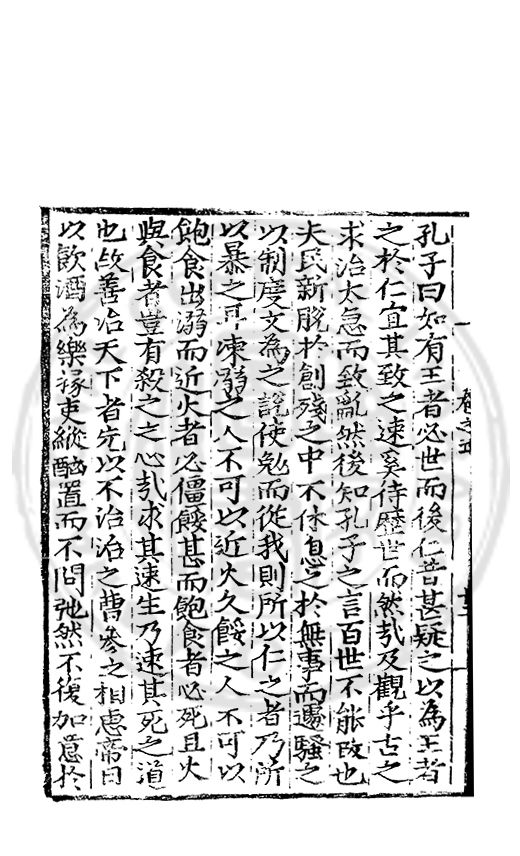 孔子曰如有王者必世而後仁昔甚疑之以為王者
之於仁宜其致之速奚待歷世而然㢤及觀乎古之
求治太急而致亂然後知孔子之言百世不能改也
夫民新脫於創殘之中不休息之於無事而遽騷之
以制度文為之說使勉而從我則所以仁之者乃所
以暴之耳凍溺之人不可以近火久餒之人不可以
飽食出溺而近火者必僵餒甚而飽食者必死且火
與食者豈有殺之之心㢤求其速生乃速其死之道
也故善治天下者先以不治治之曹參之相惠帝日
以飲酒為樂掾吏縱酗置而不問弛然不復加意於
卷之五